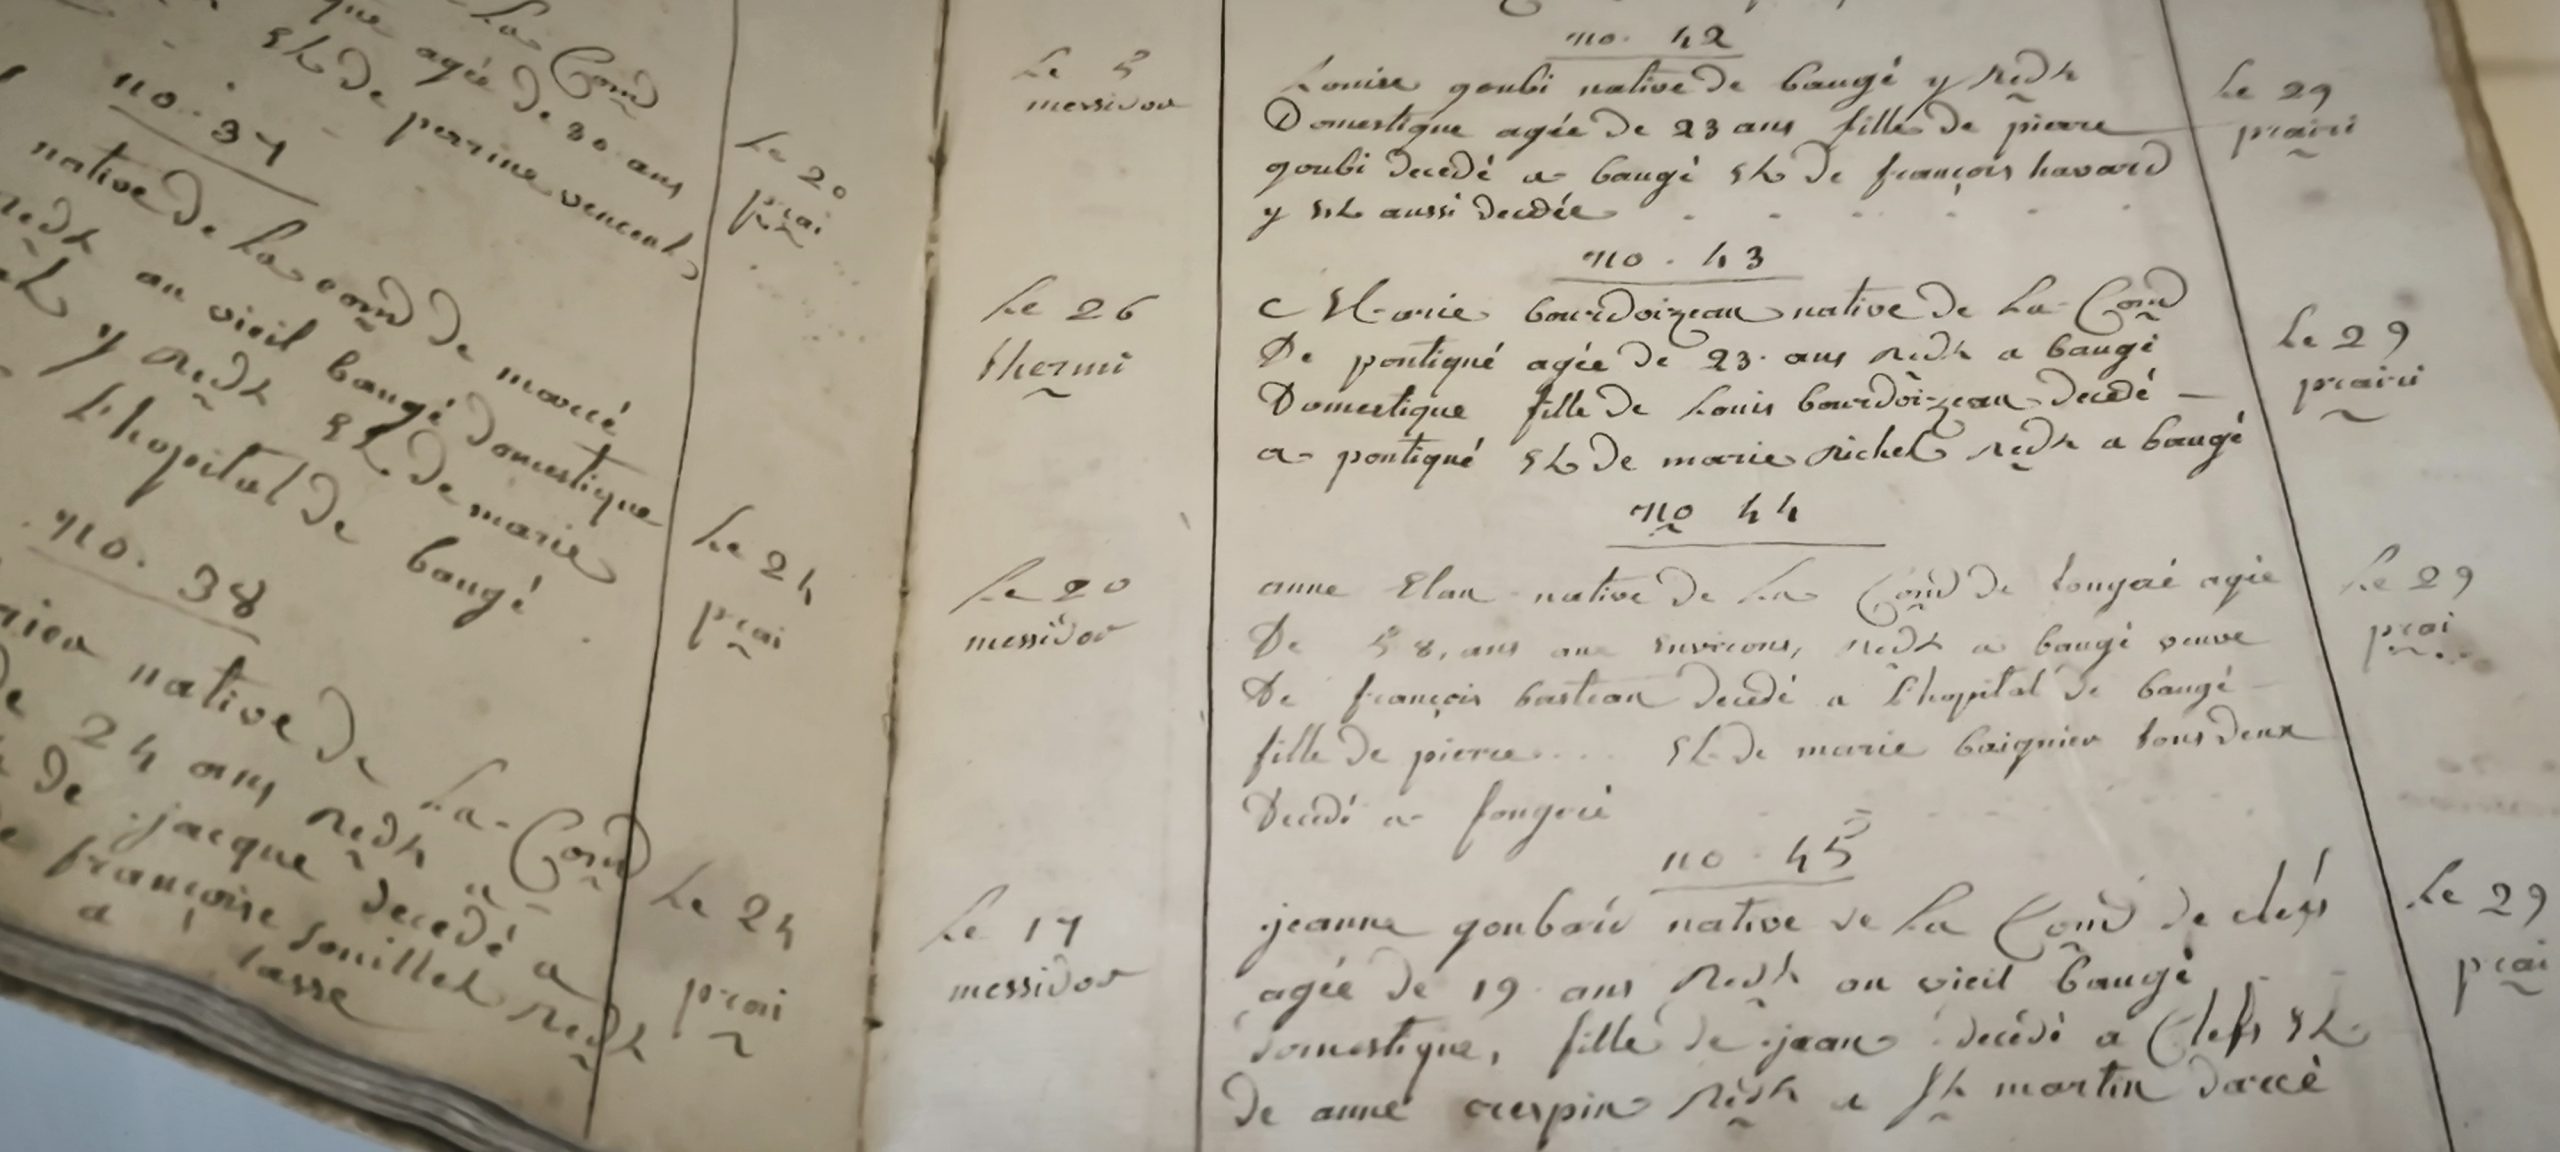 La Comd
que agée de 30 ans
et de perrine vencent
Le 20
prai
no. 37
native de La comd de marcé
redt au vieil baugé domestique
y redt et de marie
L'hopital de baugé
Le 24
prai
no. 38
native de La Comd
de 24 ans redt a
de jacque decedé a
françoise souillet redt
a Lasse
Le 24
prai
no. 42
Le 5
messidor
Louise goubi native de baugé y redt
Domestique agée de 23 ans fille de piare
goubi decedé a baugé et de françois havard
y et aussi decedée
Le 29
prairi
no. 43
Le 26
thermi
Marie bourdoizeau native de La Comd
De pontigné agée de 23 ans redt a baugé
Domestique fille de Louis bourdoizeau decedé
a pontigné et de marie richet redt a baugé
Le 29
prairi
no 44
Le 20
messidor
anne Elan native de La Comd de fougré agée
De 58, ans aux Environs, redt a baugé veuve
De françois bastean decedé a L'hopital de baugé
fille de pierre .... et de marie baignier tous deux
Decedé a fougeré
Le 29
prai
no. 45
Le 17
messidor
jeanne goubard native de La Comd de clefs
agée de 19 ans Redt au vieil baugé
domestique, fille de jean decedé a Clefs et
de anne crespin Redt a St martin darcé
Le 29
prai